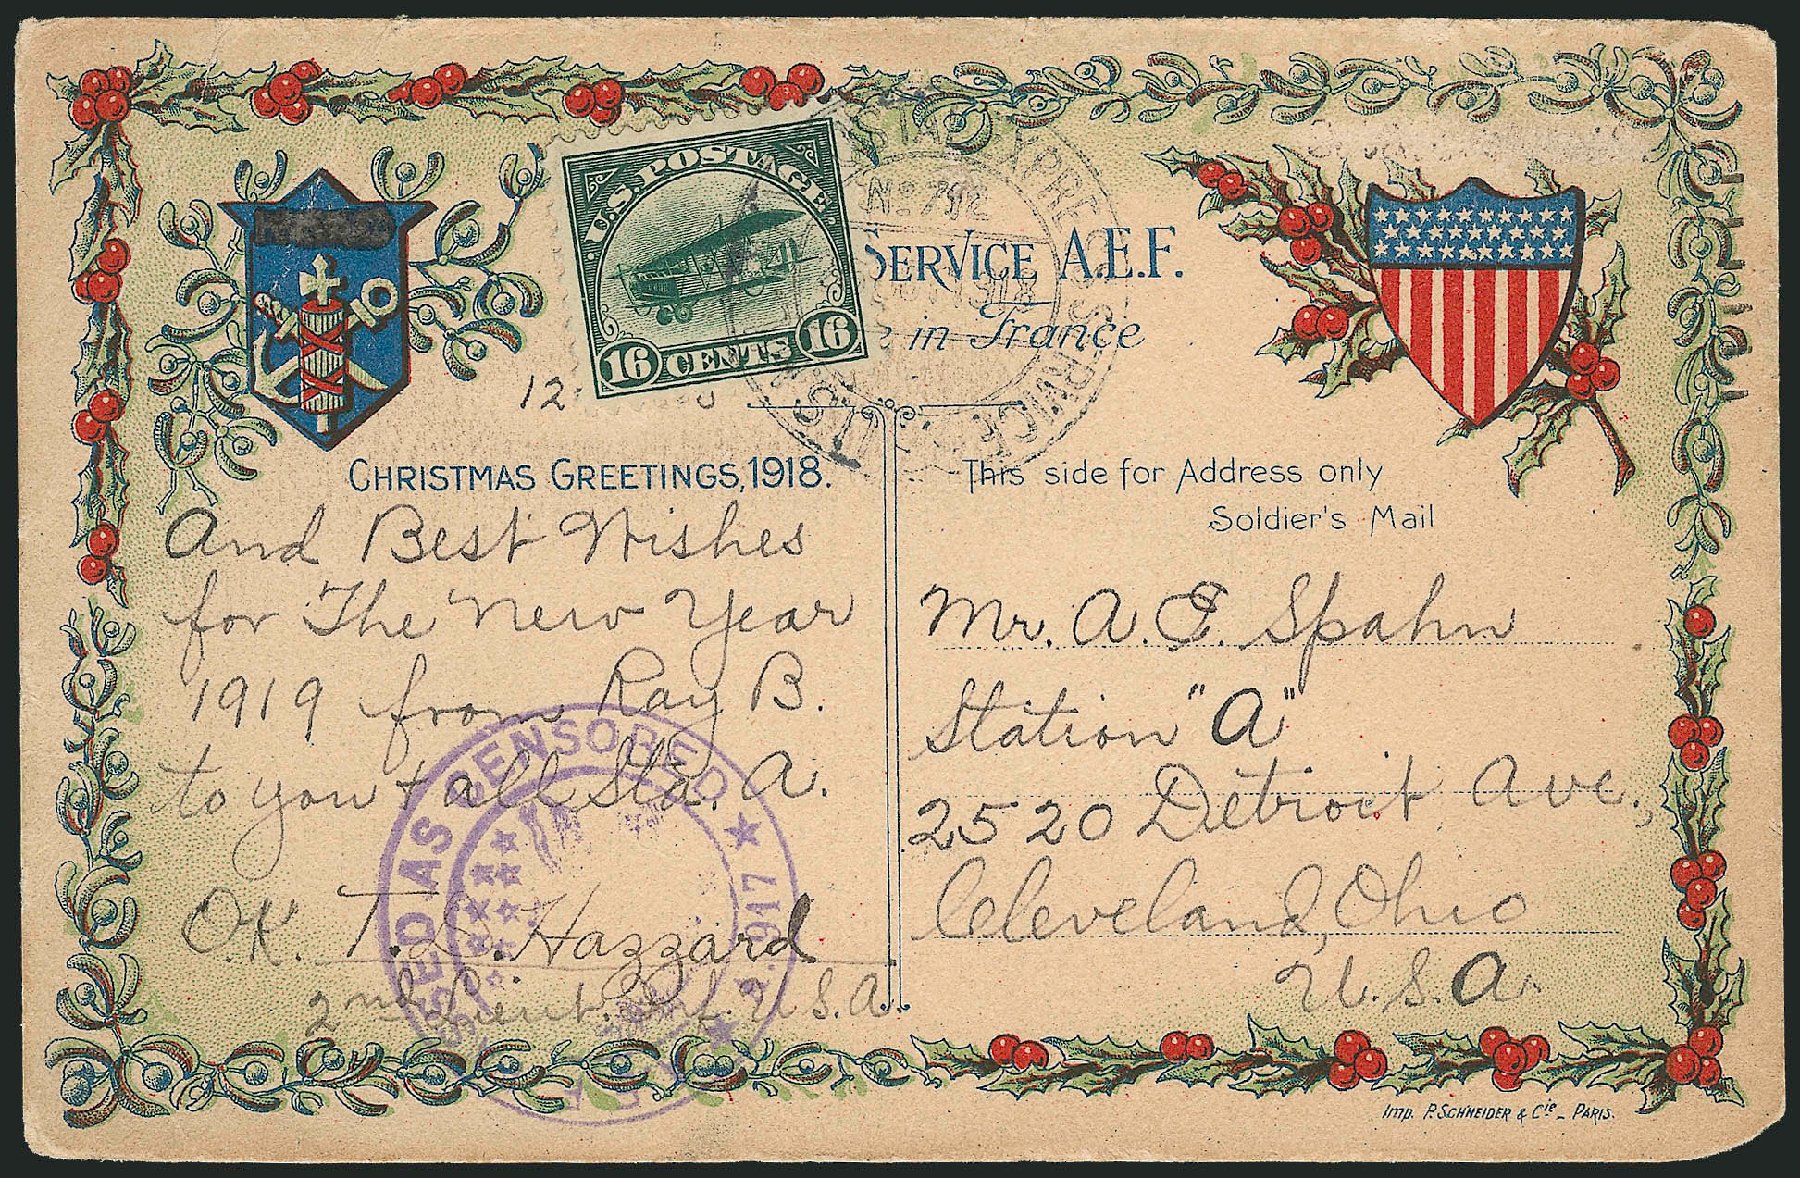 U.S. POSTAGE
16 CENTS 16
No. 792
SERVICE A.E.F.
in France
12
CHRISTMAS GREETINGS, 1918.
And Best Wishes
for The New Year
1919 from Ray B.
to you + all Sta. A.
O.K. T. L. Hazzard
2nd Lieut. Inf. U.S.A.
AS CENSORED
1917
This side for Address only
Soldier's Mail
Mr. A. E. Spahn
Station "A"
2520 Detroit Ave.,
Cleveland, Ohio
U.S.A.
Imp. P. SCHNEIDER & Cie - PARIS.